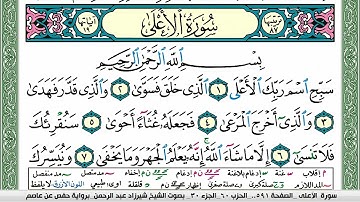 سُورَةُ الأَعْلَى
بِسْمِ اللَّهِ الرَّحْمَٰنِ الرَّحِيمِ
سَبِّحِ اسْمَ رَبِّكَ الْأَعْلَى ١ الَّذِي خَلَقَ فَسَوَّىٰ ٢ وَالَّذِي قَدَّرَ فَهَدَىٰ
٣ وَالَّذِي أَخْرَجَ الْمَرْعَىٰ ٤ فَجَعَلَهُ غُثَاءً أَحْوَىٰ ٥ سَنُقْرِئُكَ
فَلَا تَنسَىٰ ٦ إِلَّا مَا شَاءَ اللَّهُ إِنَّهُ يَعْلَمُ الْجَهْرَ وَمَا يَخْفَىٰ ٧ وَنُيَسِّرُكَ
سورة الأعلى الصفحة ٥٩١ الحزب ٦٠ الجزء ٣٠ بصوت الشيخ شيرزاد عبد الرحمن برواية حفص عن عاصم